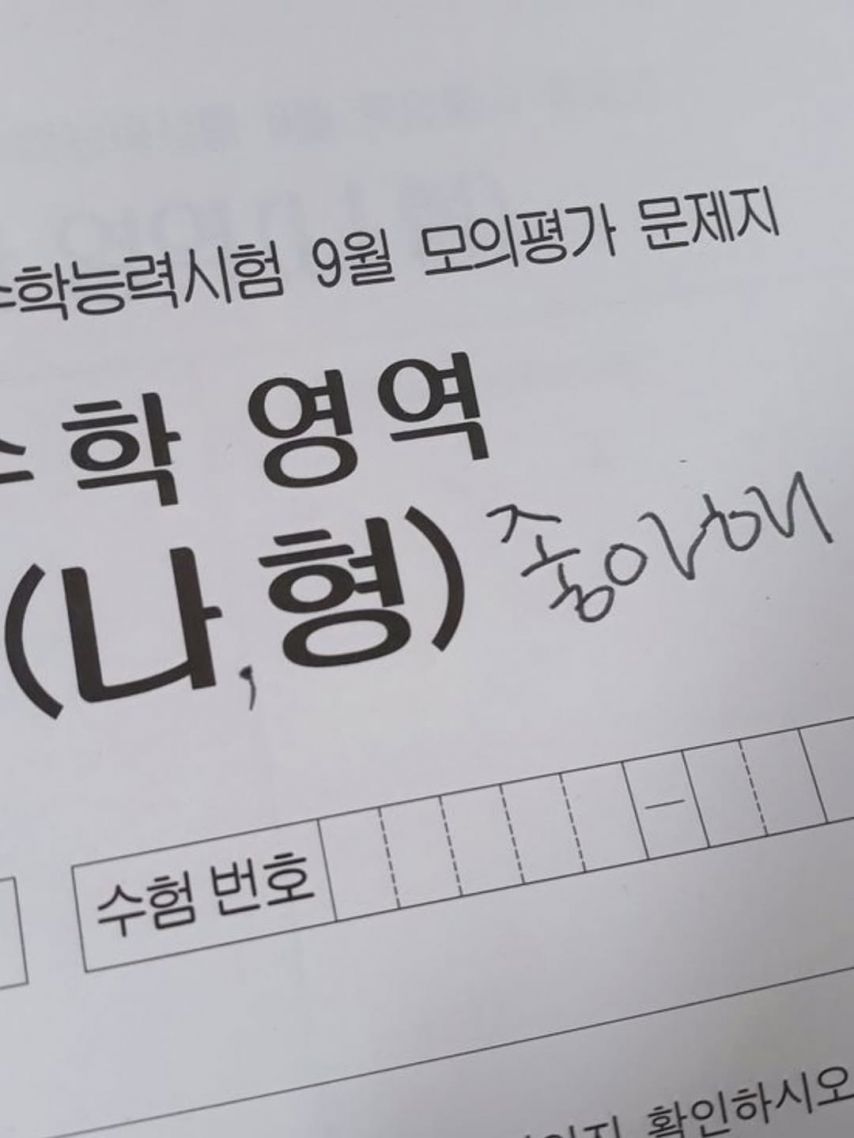 수학능력시험 9월 모의평가 문제지
수학 영역
(나,형) 좋아해
수험 번호 –
확인하시오